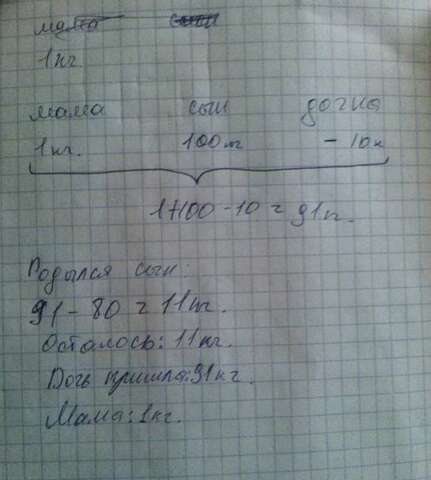 мама сын
1кг.
мама сын дочка
1кг. 100кг - 10к
1+100-10 = 91кг.
Родылся сын:
91-80 = 11кг.
Осталось: 11кг.
Дочь пришла: 91кг.
Мама: 1кг.